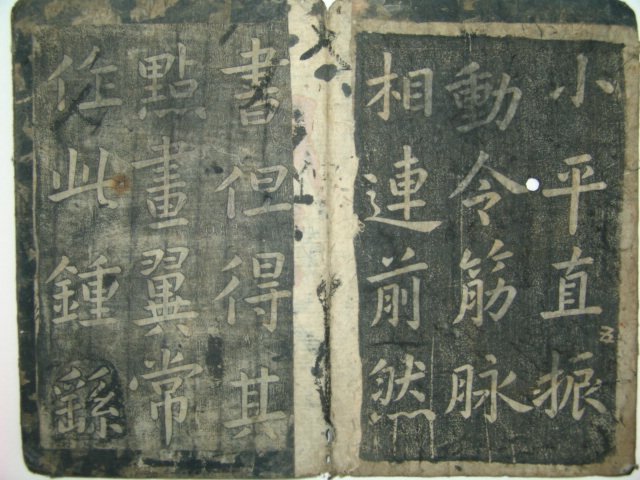 小平直振
動令筋脉
相連前然
書但得其
點畫翼常
作此鍾繇